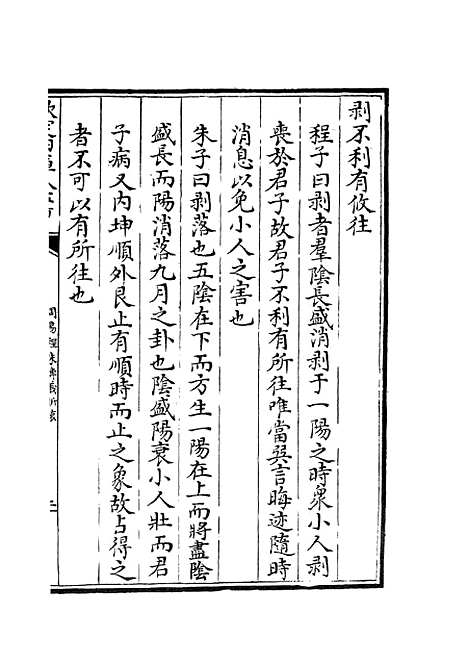 剥不利有攸往
程子曰剥者羣陰長盛消剥于一陽之時衆小人剥
喪於君子故君子不利有所往唯當巽言晦迹隨時
消息以免小人之害也
朱子曰剥落也五陰在下而方生一陽在上而將盡陰
盛長而陽消落九月之卦也陰盛陽衰小人壯而君
子病又内坤順外艮止有順時而止之象故占得之
者不可以有所往也